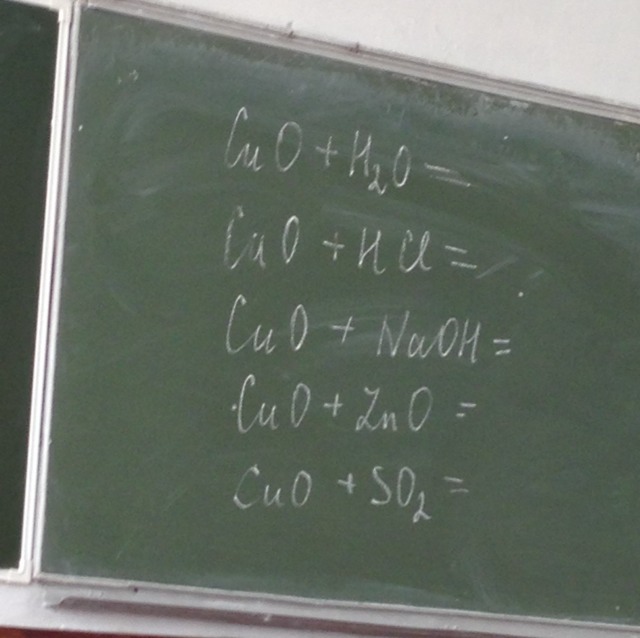 CuO + H₂O =
CuO + HCl =
CuO + NaOH =
CuO + ZnO =
CuO + SO₂ =